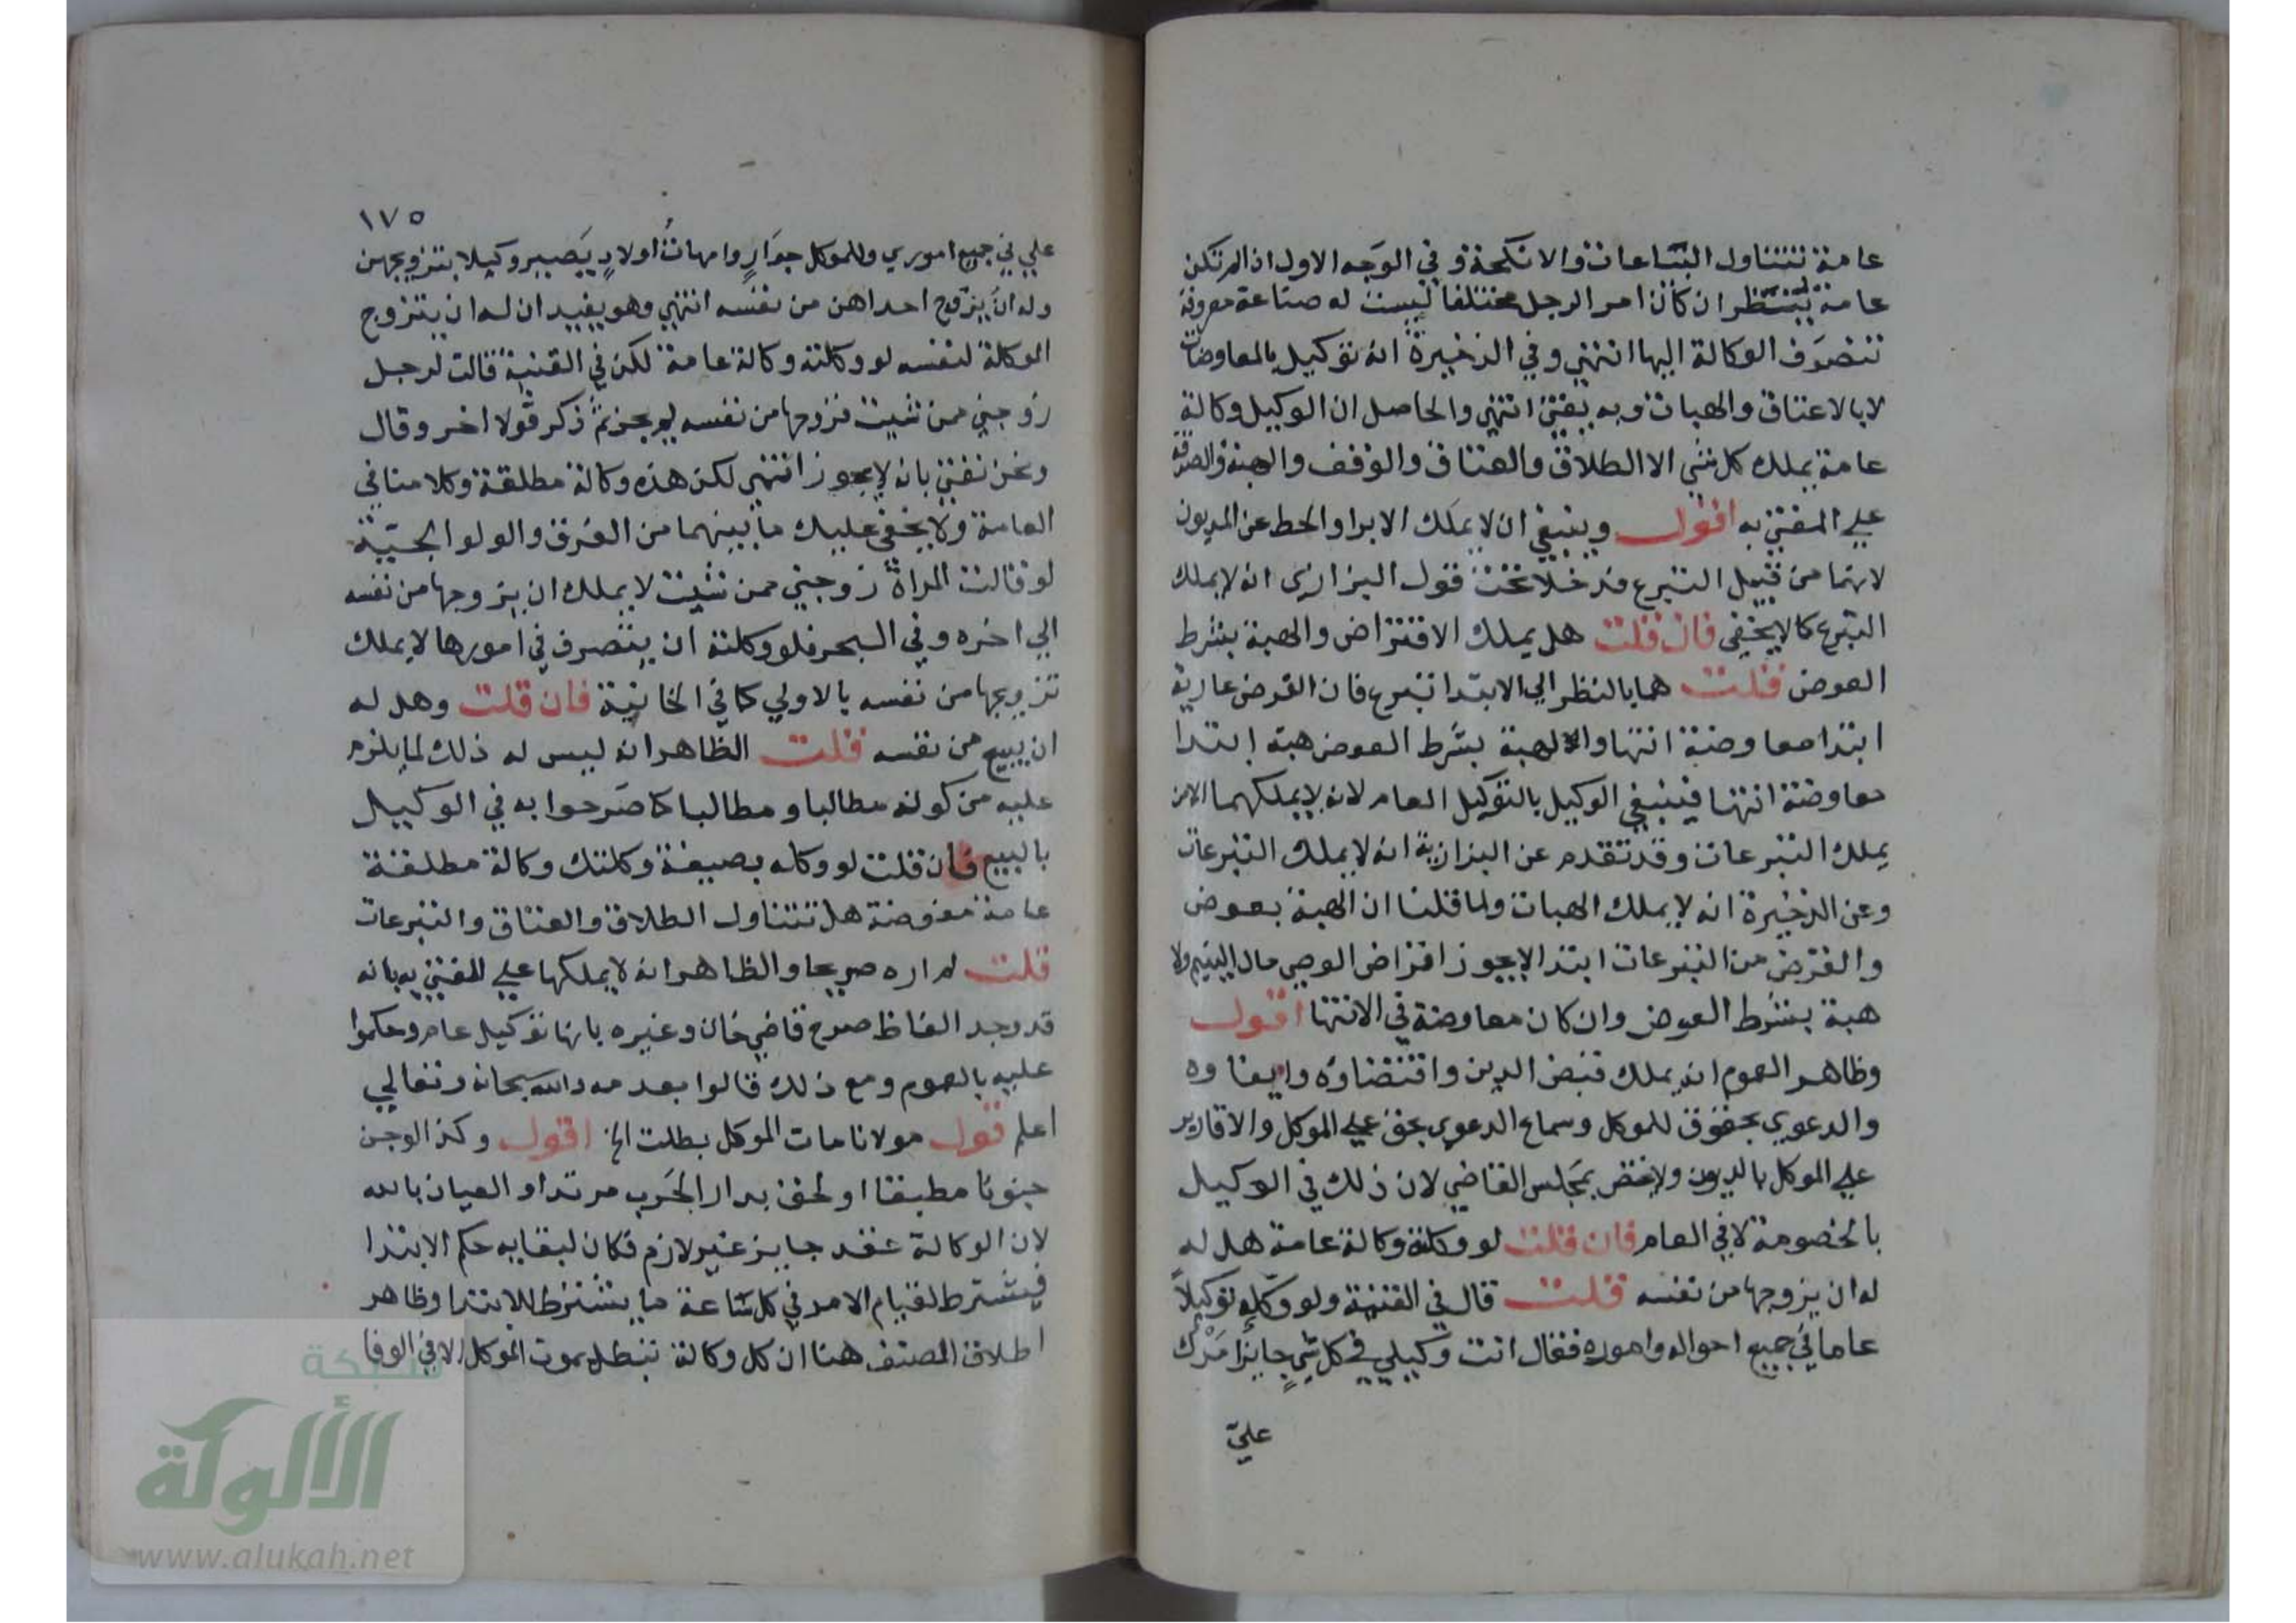 عامة تتناول البياعات والانكحة وفي الوجه الاول اذا لم تكن
عامة ينظر ان كان امر الرجل مختلفا ليست له صناعة معروفة
تنصرف الوكالة اليها انتهى وفي الذخيرة انه توكيل بالمعاوضات
لا بالاعتاق والهبات وبه يفتى انتهى والحاصل ان الوكيل وكالة
عامة يملك كل شي الا الطلاق والعتاق والوقف والهبة والصدقة
علي المفتى به اقول وينبغي ان لا يملك الابرا والحط عن المديون
لانهما من قبيل التبرع فدخلا تحت قول البزازي انه لا يملك
التبرع كما لا يخفى فان قلت هل يملك الاقتراض والهبة بشرط
العوض قلت هما بالنظر الي الابتدا تبرع فان القرض عارية
ابتدا معاوضة انتها والهبة بشرط العوض هبة ابتدا
معاوضة انتها فينبغي الوكيل بالتوكيل العام لانه لا يملكهما الا من
يملك التبرعات وقد تقدم عن البزازية انه لا يملك التبرعات
وعن الذخيرة انه لا يملك الهبات ولما قلنا ان الهبة بعوض
والقرض من التبرعات ابتدا لا يجوز اقراض الوصي مال اليتيم ولا
هبة بشرط العوض وان كان معاوضة في الانتها اقول
وظاهر العموم انه يملك قبض الدين واقتضاوه وايفاوه
والدعوي بحقوق للموكل وسماع الدعوي بحق علي الموكل والاقارير
علي الموكل بالديون ولا يختص بمجلس القاضي لان ذلك في الوكيل
بالخصومة لا في العام فان قلت لو وكلته وكالة عامة هل له
له ان يزوجها من نفسه قلت قال في القنية ولو وكله توكيلا
عاما في جميع احواله واموره فقال انت وكيلي في كل شي جايزا مرك
عليّ
١٧٥
علي في جميع اموري وللموكل جوار وامهات اولاد يصير وكيلا بتزويجهن
وله ان يزوج احداهن من نفسه انتهى وهو يفيد ان له ان يتزوج
الموكلة لنفسه لو وكلته وكالة عامة لكن في القنية قالت لرجل
زوجني ممن شيت فزوجها من نفسه لم يجز ثم ذكر قولا اخر وقال
ونحن نفتي بانه لا يجوز انتهى لكن هذه وكالة مطلقة وكلامنا في
العامة ولا يخفي عليك ما بينهما من الفرق والولوالجية
لو قالت المراة زوجني ممن شيت لا يملك ان يزوجها من نفسه
الي اخره وفي البحر فلو وكلته ان يتصرف في امورها لا يملك
تزويجها من نفسه بالاولي كما في الخانية فان قلت وهل له
ان يبيع من نفسه قلت الظاهر انه ليس له ذلك لما يلزم
عليه من كونه مطالبا ومطالبا كما صرحوا به في الوكيل
بالبيع فان قلت لو وكله بصيغة وكلتك وكالة مطلقة
عامة مفوضة هل تتناول الطلاق والعتاق والتبرعات
قلت لم اره صريحا والظاهر انه لا يملكها علي المفتي به بانه
قد وجد الفاظ صرح قاضي خان وغيره بانها توكيل عام وحكموا
عليه بالعموم ومع ذلك قالوا بعدمه والله سبحانه وتعالي
اعلم قول مولانا مات الموكل بطلت الخ اقول وكذا لو جن
جنونا مطبقا او لحق بدار الحرب مرتدا والعيان بالله
لان الوكالة عقد جايز غير لازم فكان لبقايه حكم الابتدا
فيشترط لقيام الامر في كل ساعة ما يشترط للابتدا وظاهر
اطلاق المصنف هنا ان كل وكالة تبطل بموت الموكل الا في الوفا
شبكة
الألوكة
www.alukah.net